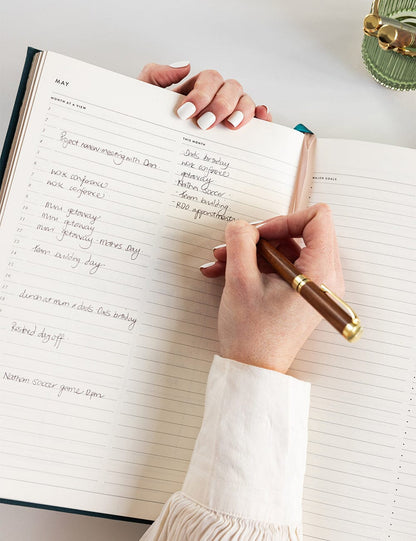 MAY
MONTH AT A VIEW
Project review meeting with Dan
work conference
work conference
mini getaway
mini getaway
mini getaway - Mothers Day
team building day
Lunch at mum & dads Dads birthday
Rostered day off
Nathan Soccer game 12pm
THIS MONTH
Dads birthday
work conference
getaway
Nathan Soccer
team building
RDO appointments
MAJOR GOALS